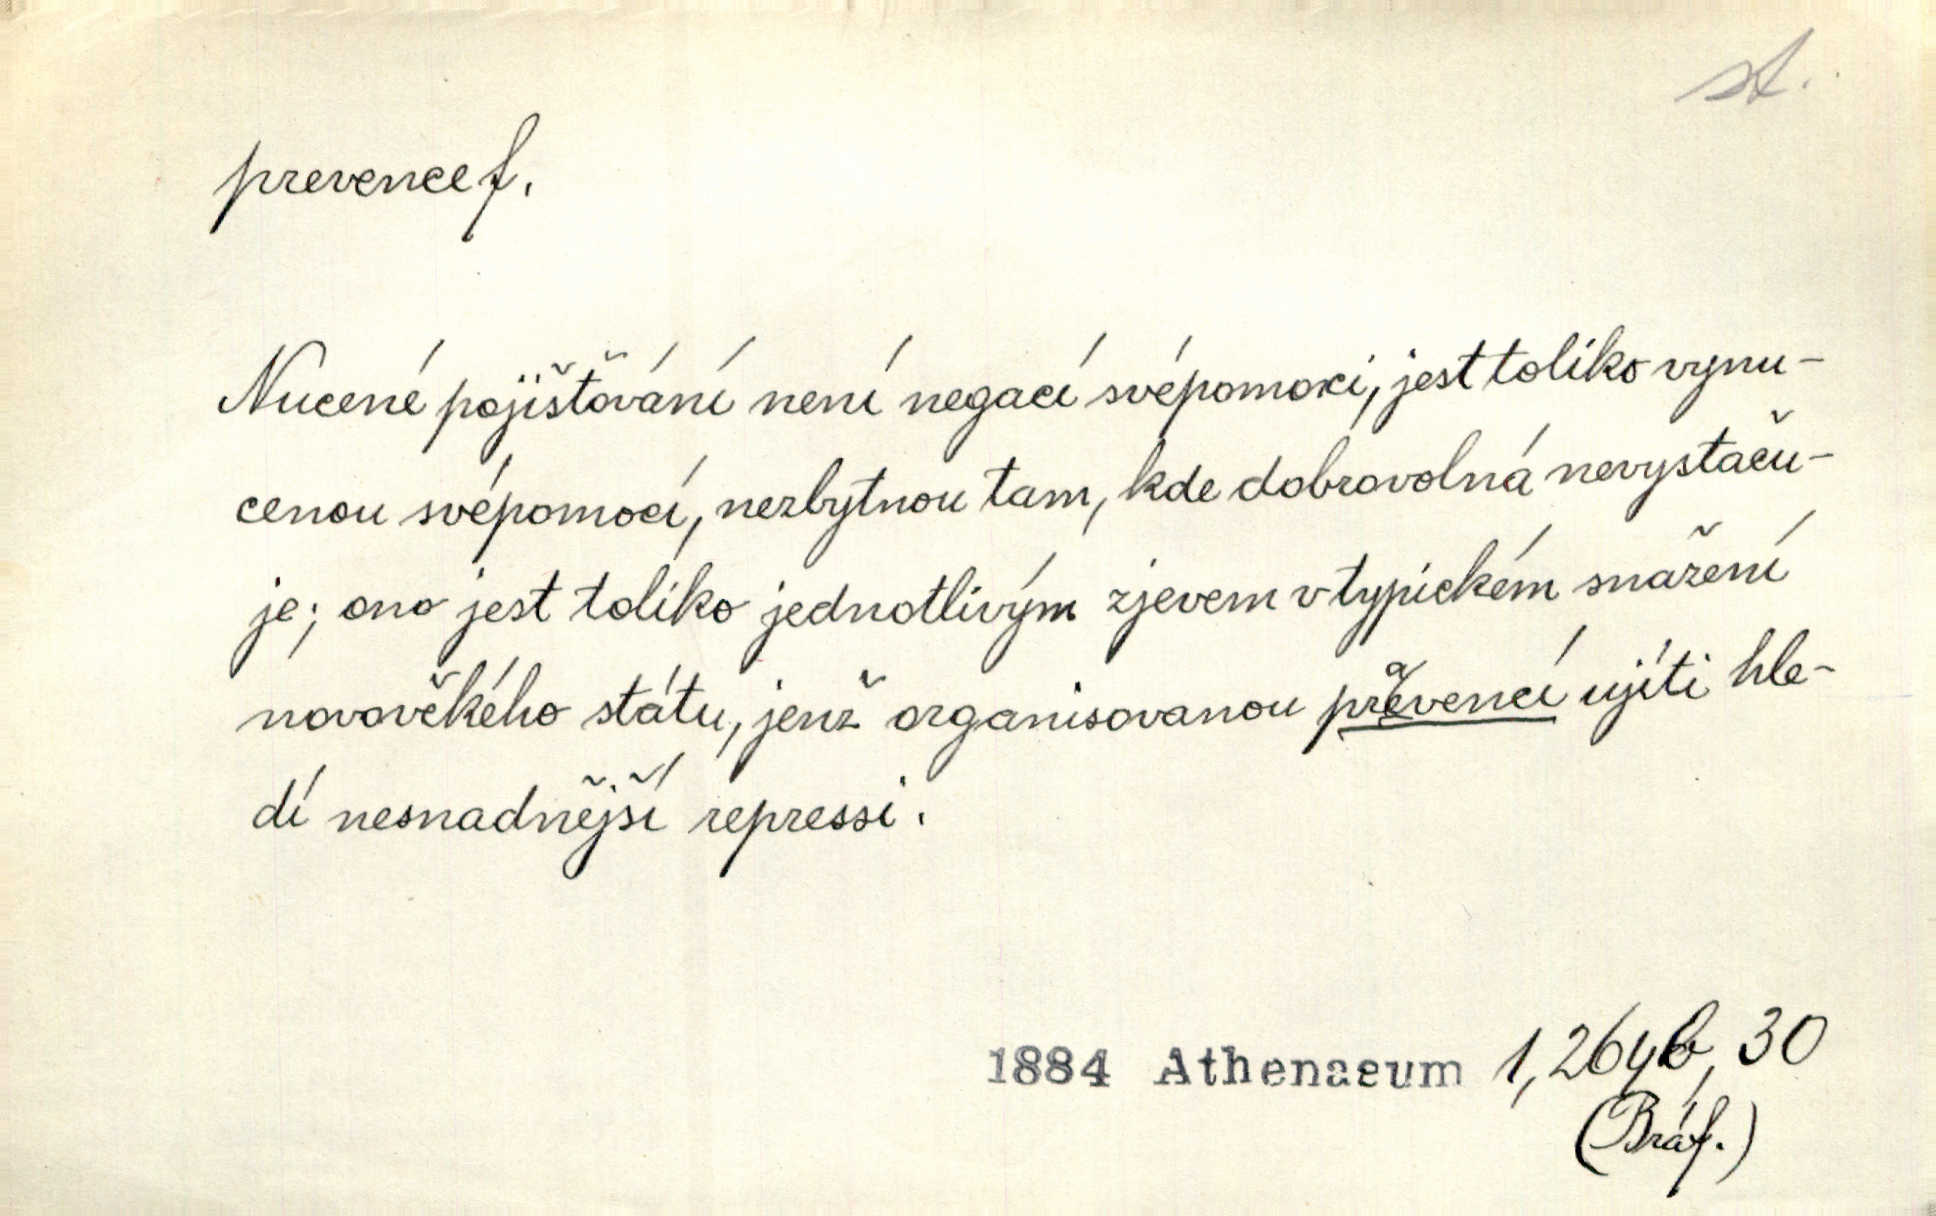 st.
prevence f.
Nucené pojišťování není negací svépomoci, jest toliko vynu-
cenou svépomocí, nezbytnou tam, kde dobrovolná nevystaču-
je; ono jest toliko jednotlivým zjevem v typickém snažení
novověkého státu, jenž organisovanou prevencí ujíti hle-
dí nesnadnější repressi.
1884 Athenaeum 1, 264b, 30
(Bráf.)